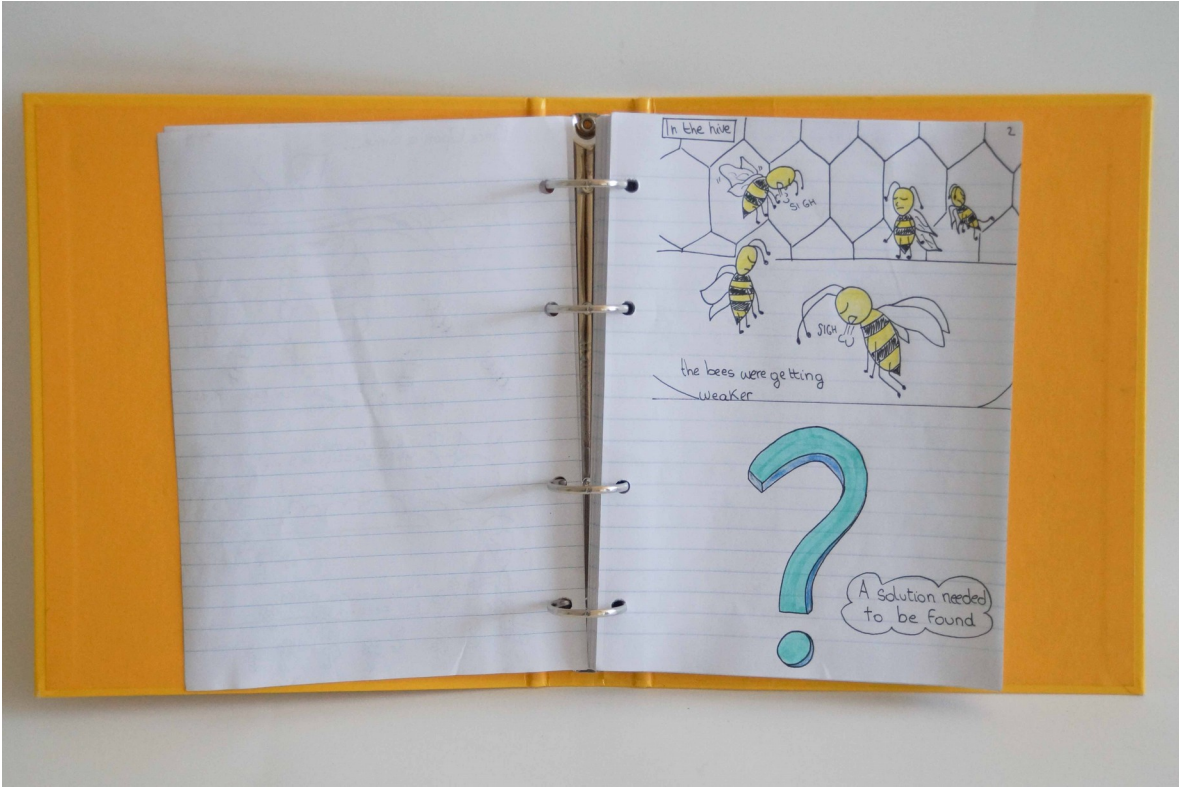 In the hive
2
SIGH
SIGH
the bees were getting
weaker
A solution needed
to be found